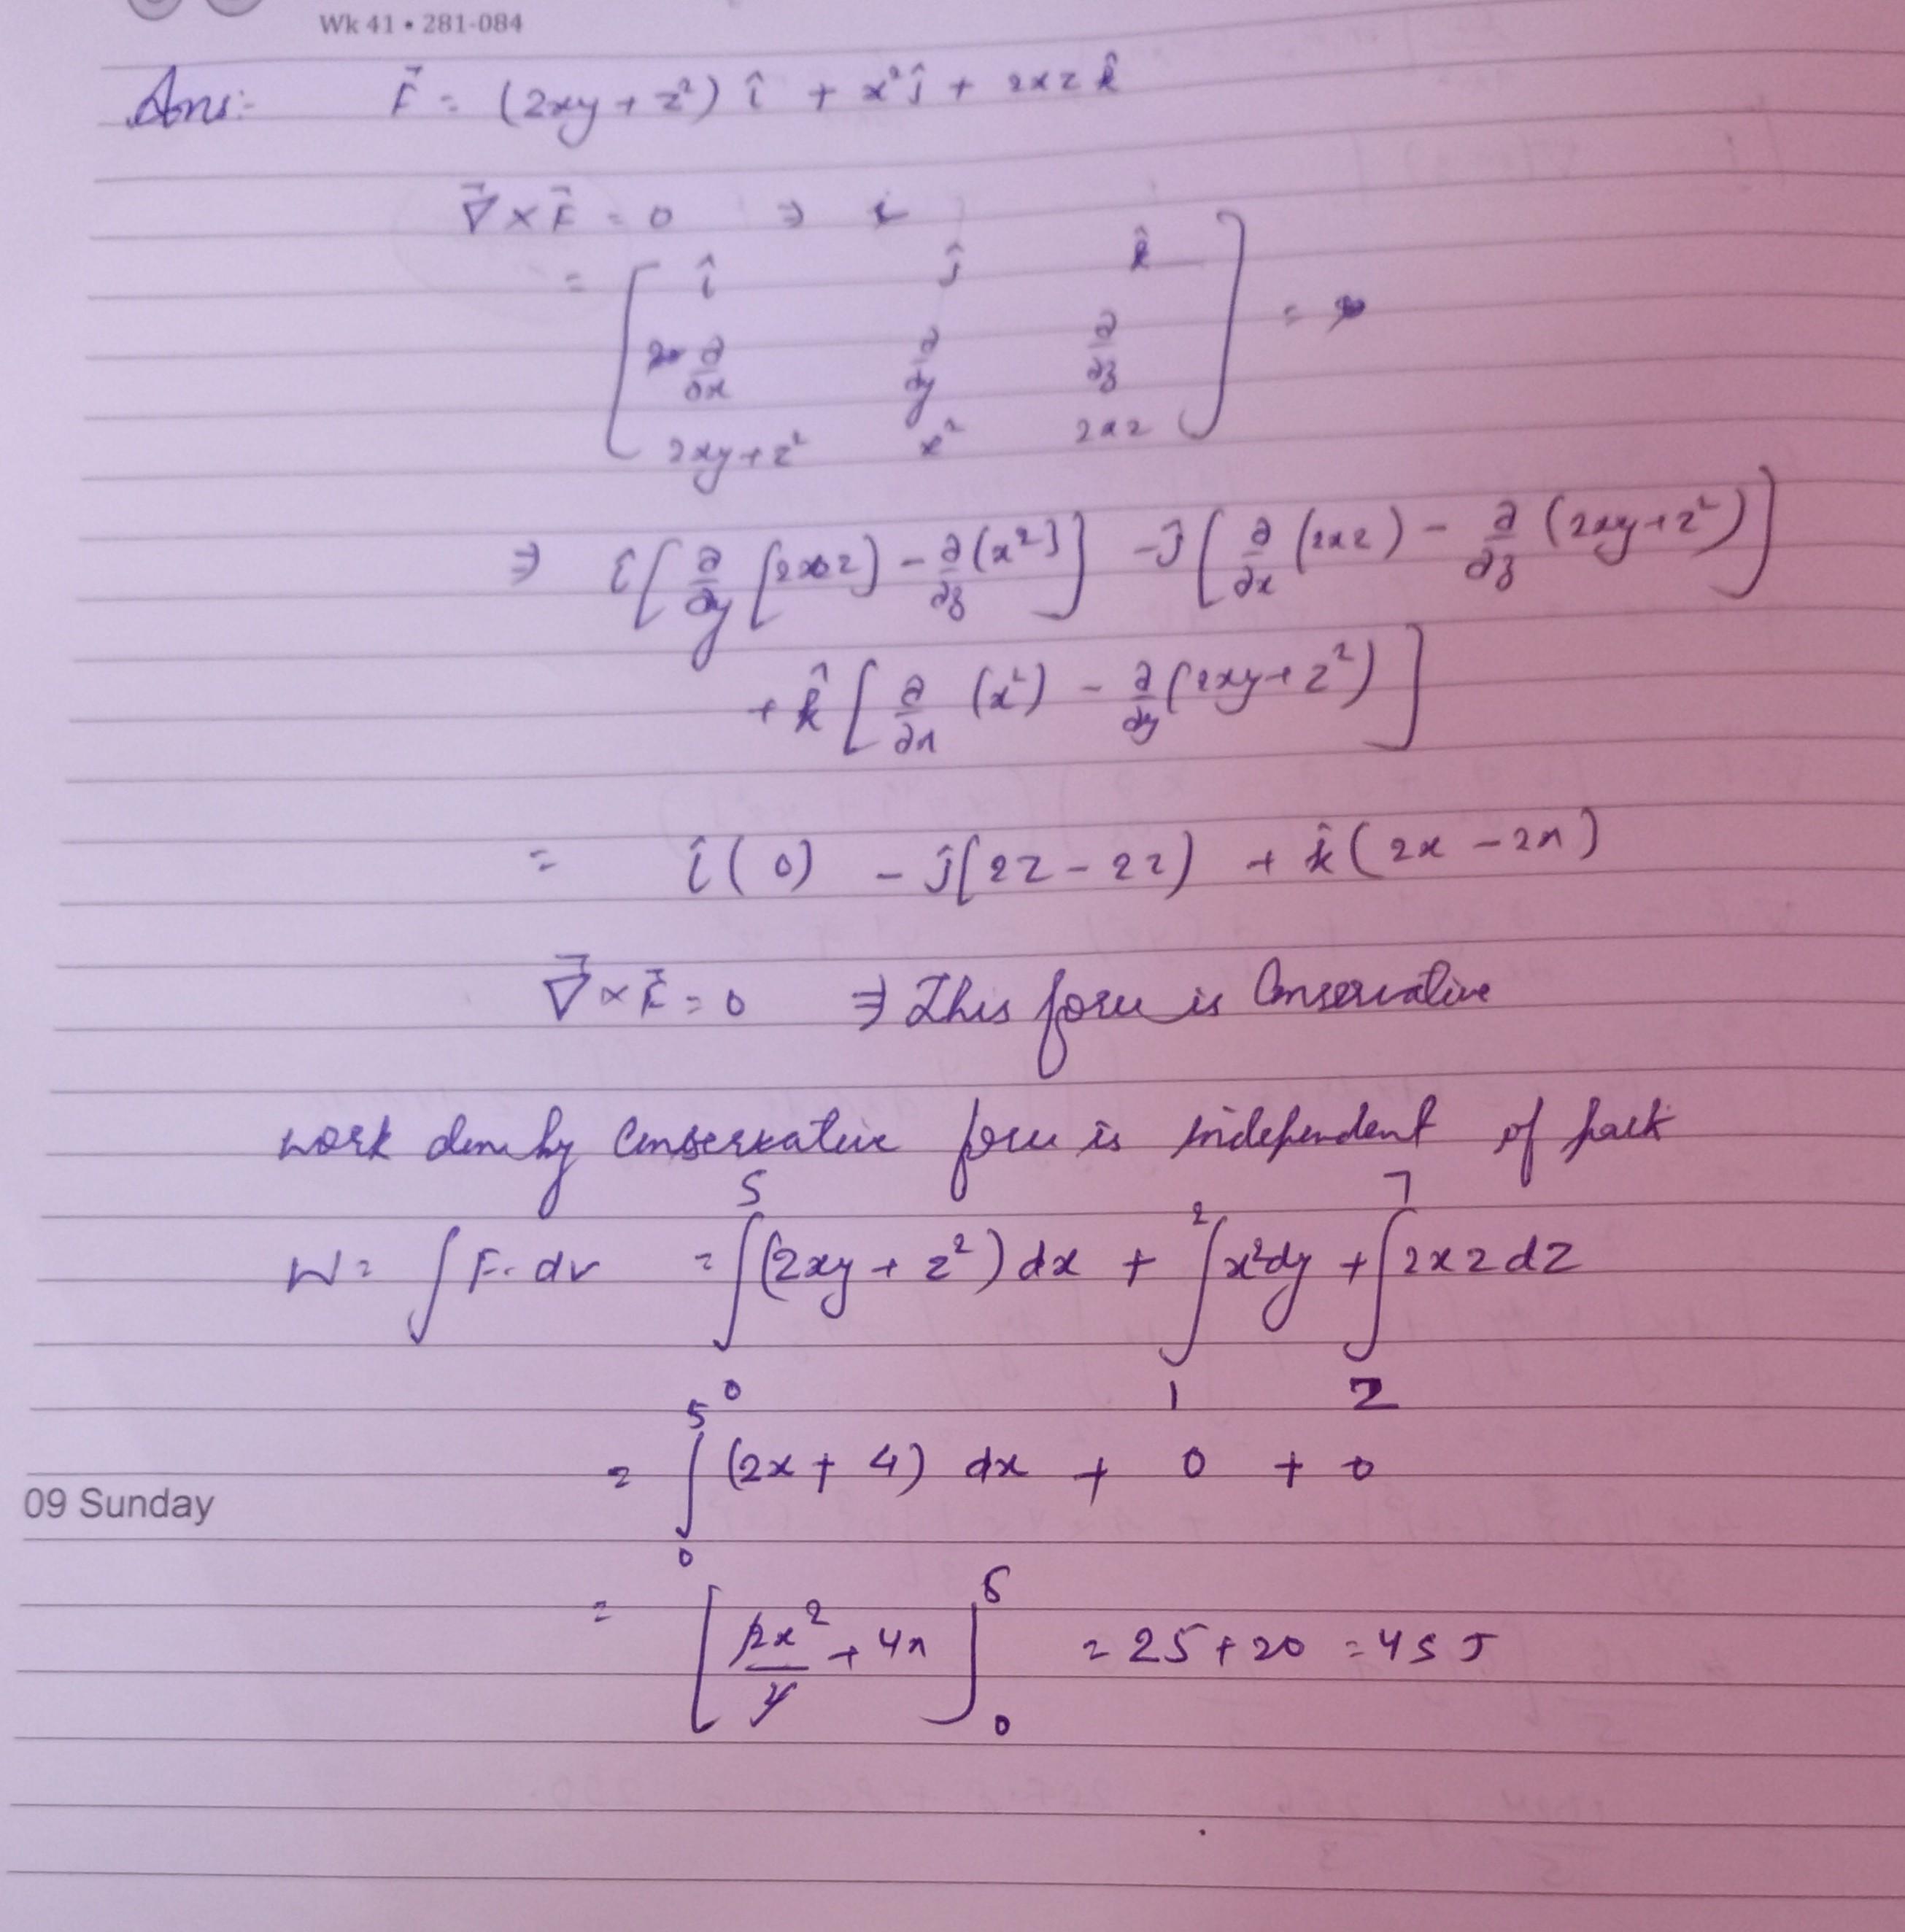 Wk 41 • 281-084
Ans:- F⃗ = (2xy + z²) î + x² ĵ + 2xz k̂
∇⃗ × F⃗ = 0 ⇒ i
= [ î ĵ k̂
∂/∂x ∂/∂y ∂/∂z ] =
2xy+z² x² 2xz
⇒ î [ ∂/∂y [2xz) - ∂/∂z (x²) ] - ĵ [ ∂/∂x (2xz) - ∂/∂z (2xy+z²) ]
+ k̂ [ ∂/∂x (x²) - ∂/∂y (2xy+z²) ]
= î ( 0 ) - ĵ [2z - 2z) + k̂ ( 2x - 2x )
∇⃗ × F⃗ = 0 ⇒ This force is Conservative
work done by Conservative force is independent of path
W = ∫ F. dr = ∫₀⁵ (2xy + z²) dx + ∫₁² x² dy + ∫₂⁷ 2xz dz
= ∫₀⁵ (2x + 4) dx + 0 + 0
09 Sunday
= [ 2x²/2 + 4x ]₀⁵ = 25 + 20 = 45 J